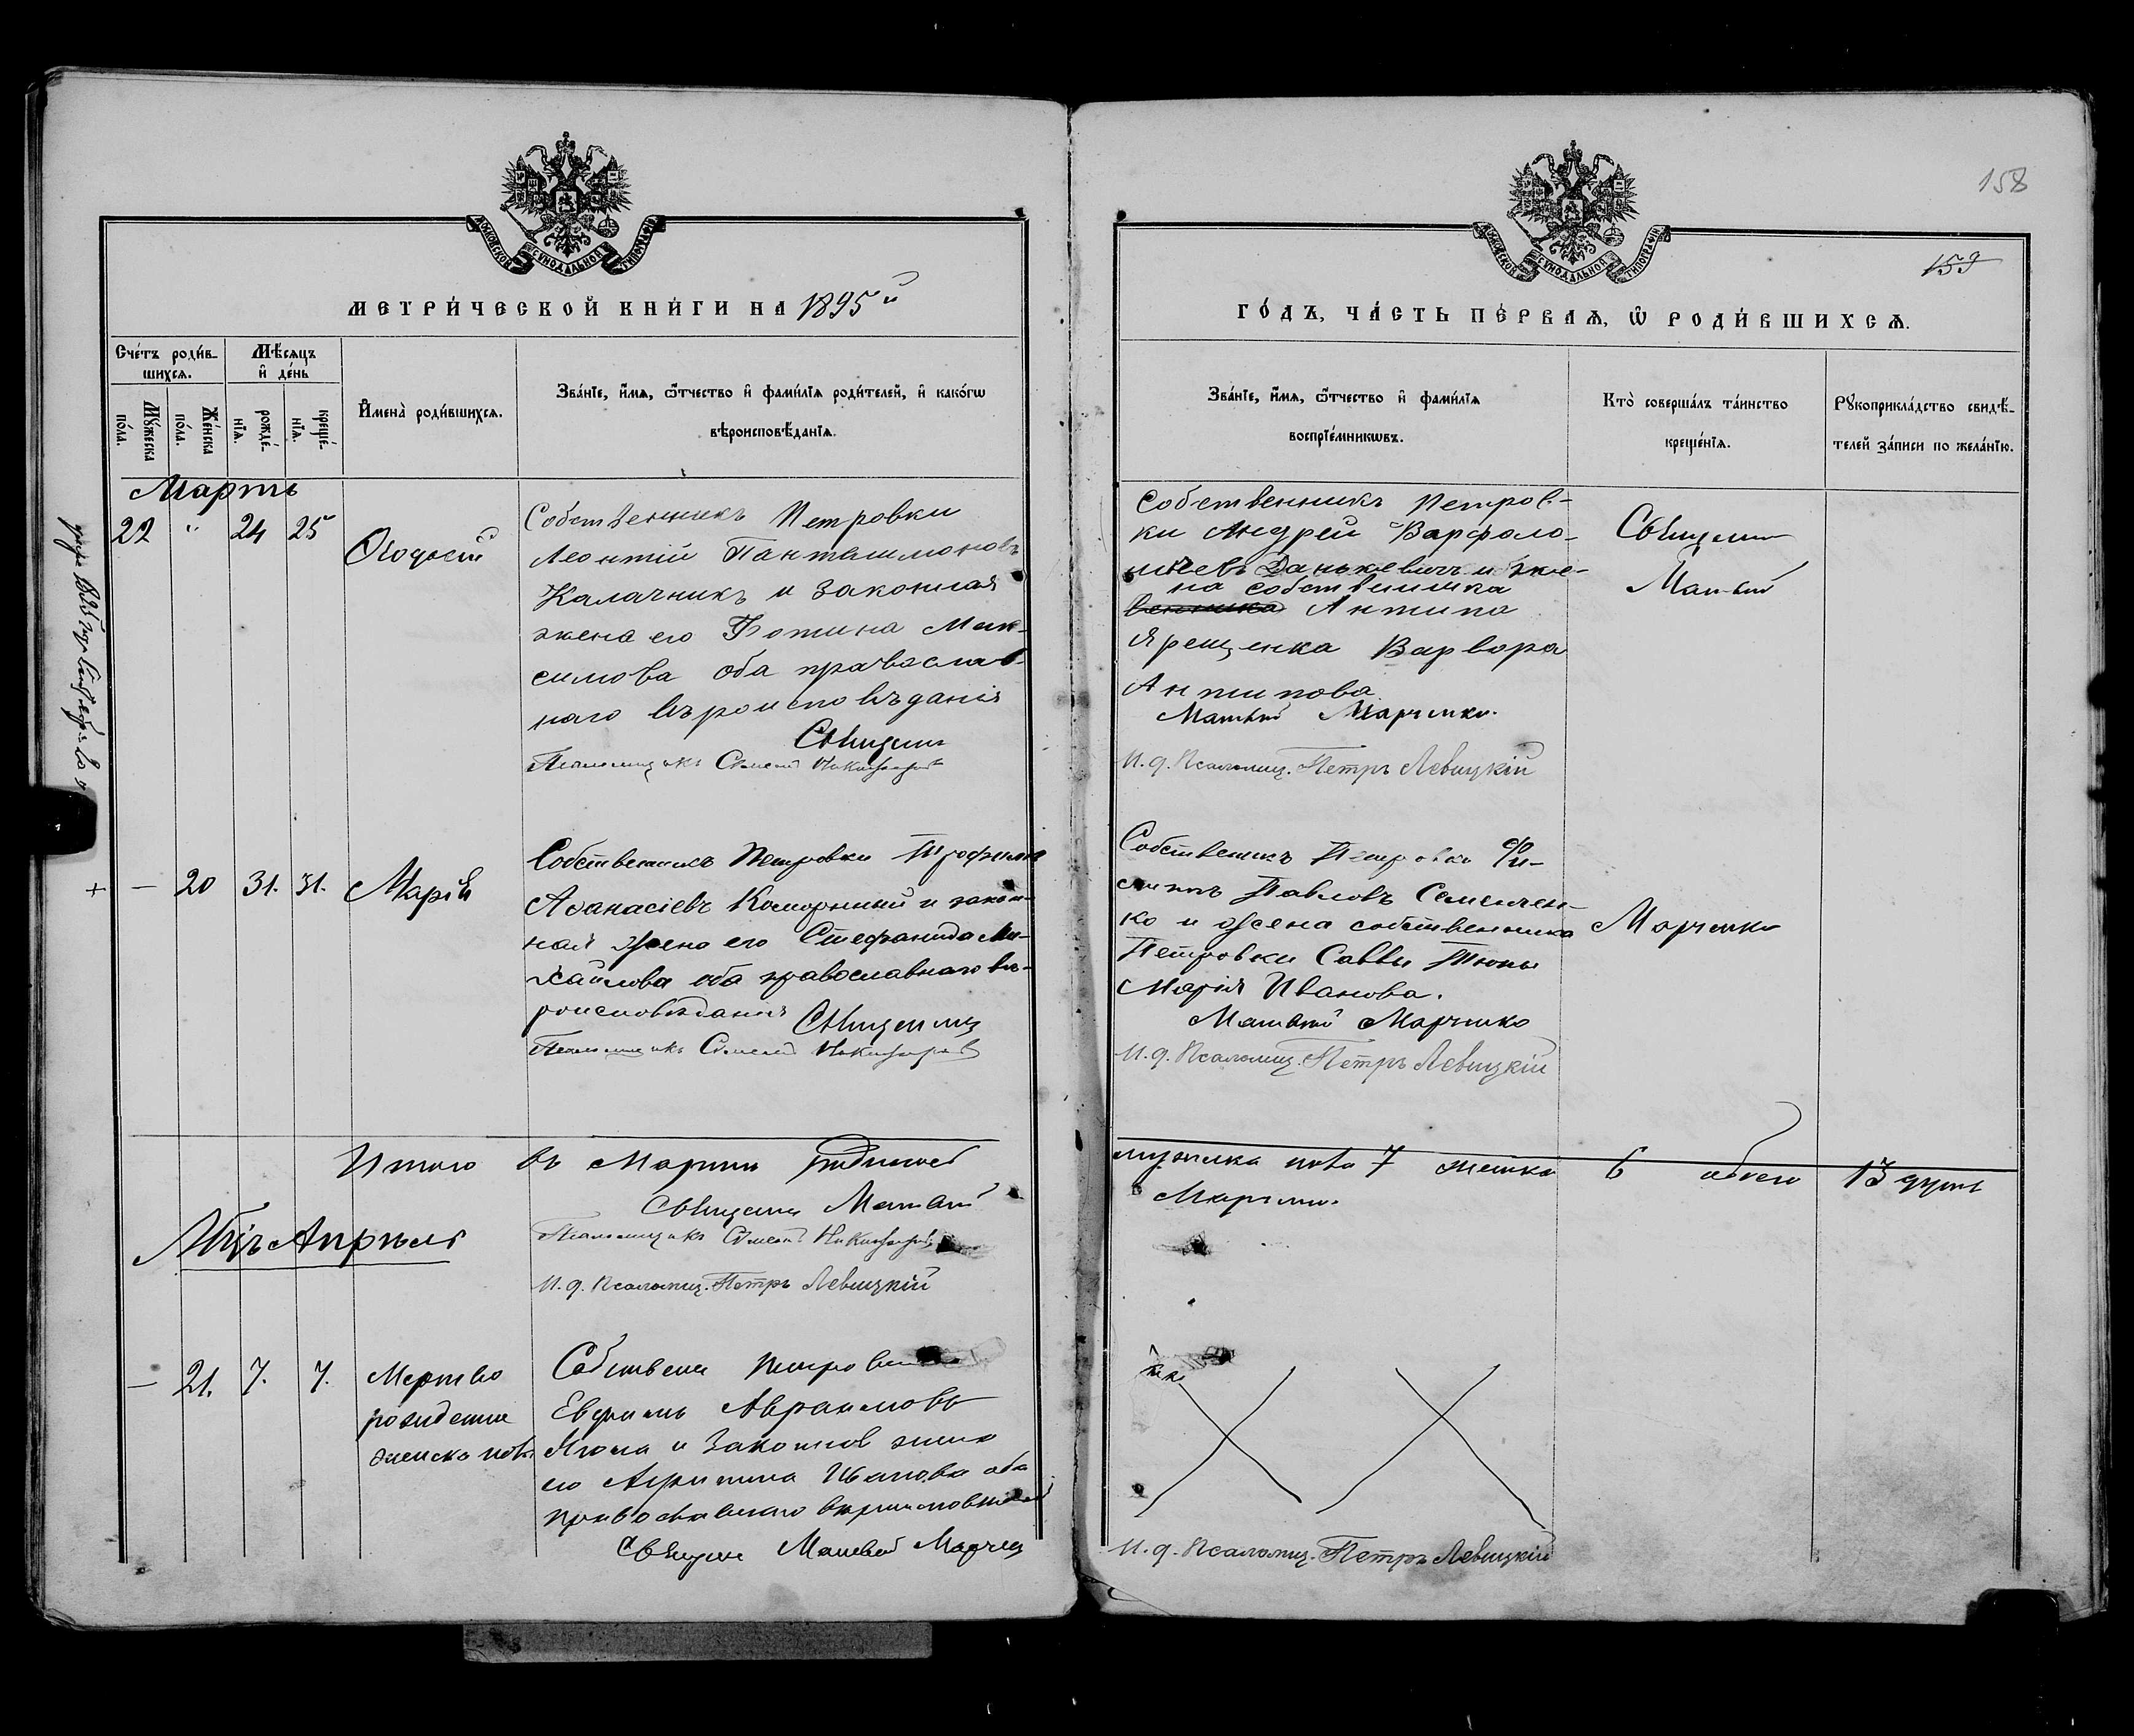 158
159
МОСКОВСКОЙ СѴНОДАЛЬНОЙ ТИПОГРАФІИ
МОСКОВСКОЙ СѴНОДАЛЬНОЙ ТИПОГРАФІИ
МЕТРИ́ЧЕСКОЙ КНИ́ГИ НА 1895й
ГО́ДЪ, ЧА́СТЬ ПЕ́РВАѦ, Ѡ҆ РОДИ́ВШИХСѦ.
Сче́тъ роди́в-
шихсѧ.
Мѣ́сѧцъ
и҆ де́нь
Мꙋ́жеска
по́ла.
Же́нска
по́ла.
рожде́-
нїѧ.
креще́-
нїѧ.
И҆мена̀ роди́вшихсѧ.
Зва́нїе, и҆́мѧ, ѻ҆́тчество и҆ фами́лїѧ роди́телей, и҆ како́гѡ
вѣроисповѣ́данїѧ.
Зва́нїе, и҆́мѧ, ѻ҆́тчество и҆ фами́лїѧ
воспрїе́мникѡвъ.
Кто̀ соверша́лъ та́инство
креще́нїѧ.
Рꙋкоприкла́дство свидѣ́-
телей за́писи по жела́нїю.
Мартъ
22 " 24 25
Ѳеодосій
Собственникъ Петровки
Леонтій Пантелимоновъ
Калачникъ и законная
жена его Фотина Мак-
симова оба православ-
наго вѣроисповѣданія
Священн
Псаломщикъ Симеонъ Никифоровъ
Собственникъ Петров-
ки Андрей Варфоло-
мѣевъ Данькевичъ и же-
на собственника
Антипа
Ярещенка Варвара
Антипова
Матвѣй Марченко.
И. д. Псаломщ. Петръ Левицкій
Священни
Матвѣй
+ — 20 31. 31. Марія
Собственникъ Петровки Трофимъ
Аѳанасіевъ Коморный и закон-
ная жена его Стефанида Ми-
хайлова оба православнаго вѣ-
роисповѣданія Священник
Псаломщикъ Симеонъ Никифоровъ
Собственикъ Петровки Фи-
липпъ Павловъ Семенчен-
ко и жена собственника
Петровки Саввы Тюпы
Марія Иванова.
Матвѣй Марченко
И. д. Псаломщ. Петръ Левицкій
Марченко
Итого въ Мартѣ родилось
мужеска пола 7 женска 6 обоего 13 душъ
Священник Матвѣй
Марченко.
Псаломщикъ Симеонъ Никифоровъ
И. д. Псаломщ. Петръ Левицкій
Мѣцъ Апрѣль
— 21. 7. 7. Мертво
рожденне
женска пола
Собствени Петровки
Евфимъ Аврамовъ
и законная жена
его Агрипина Иванова оба
православнаго вѣроисповѣданія
Священн Матвѣй Марчен
И. д. Псаломщ. Петръ Левицкій